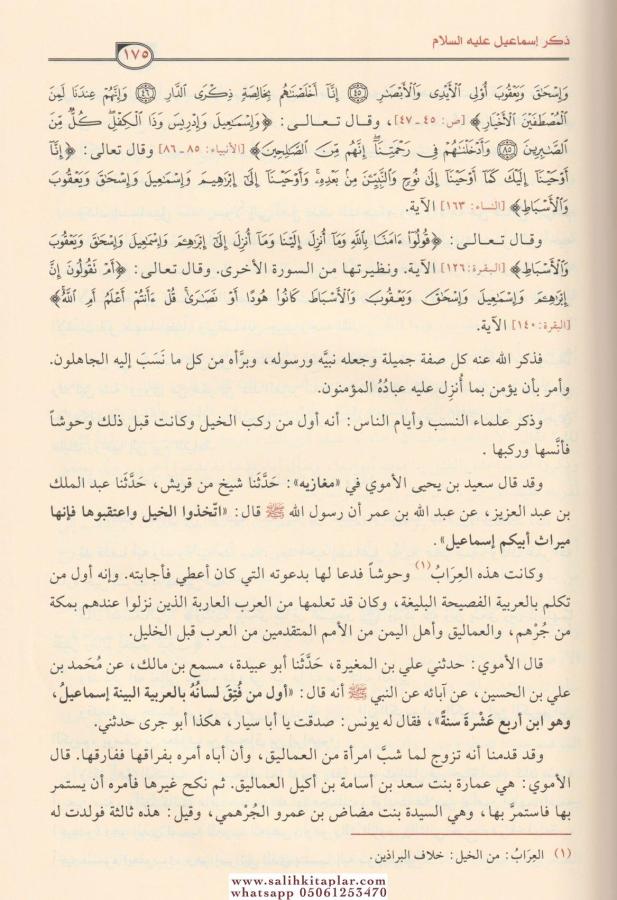 ذكر إسماعيل عليه السلام
١٧٥
وَإِسْحَٰقَ وَيَعْقُوبَ أُو۟لِى ٱلْأَيْدِى وَٱلْأَبْصَٰرِ ﴿٤٥﴾ إِنَّآ أَخْلَصْنَٰهُم بِخَالِصَةٍ ذِكْرَى ٱلدَّارِ ﴿٤٦﴾ وَإِنَّهُمْ عِندَنَا لَمِنَ
ٱلْمُصْطَفَيْنَ ٱلْأَخْيَارِ﴾ [ص: ٤٥ ـ ٤٧]، وقال تعالى: ﴿وَإِسْمَٰعِيلَ وَإِدْرِيسَ وَذَا ٱلْكِفْلِ كُلٌّ مِّنَ
ٱلصَّٰبِرِينَ ﴿٨٥﴾ وَأَدْخَلْنَٰهُمْ فِى رَحْمَتِنَآ إِنَّهُم مِّنَ ٱلصَّٰلِحِينَ﴾ [الأنبياء: ٨٥ ـ ٨٦] وقال تعالى: ﴿إِنَّآ
أَوْحَيْنَآ إِلَيْكَ كَمَآ أَوْحَيْنَآ إِلَىٰ نُوحٍ وَٱلنَّبِيِّۦنَ مِنۢ بَعْدِهِۦ وَأَوْحَيْنَآ إِلَىٰٓ إِبْرَٰهِيمَ وَإِسْمَٰعِيلَ وَإِسْحَٰقَ وَيَعْقُوبَ
وَٱلْأَسْبَاطِ﴾ [النساء: ١٦٣] الآية.
وقال تعالى: ﴿قُولُوٓا۟ ءَامَنَّا بِٱللَّهِ وَمَآ أُنزِلَ إِلَيْنَا وَمَآ أُنزِلَ إِلَىٰٓ إِبْرَٰهِۦمَ وَإِسْمَٰعِيلَ وَإِسْحَٰقَ وَيَعْقُوبَ
وَٱلْأَسْبَاطِ﴾ [البقرة: ١٢٦] الآية. ونظيرتها من السورة الأخرى. وقال تعالى: ﴿أَمْ تَقُولُونَ إِنَّ
إِبْرَٰهِۦمَ وَإِسْمَٰعِيلَ وَإِسْحَٰقَ وَيَعْقُوبَ وَٱلْأَسْبَاطَ كَانُوا۟ هُودًا أَوْ نَصَٰرَىٰ قُلْ ءَأَنتُمْ أَعْلَمُ أَمِ ٱللَّهُ﴾
[البقرة: ١٤٠] الآية.
فذكر الله عنه كل صفة جميلة وجعله نبيَّه ورسوله، وبرَّأه من كل ما نَسَبَ إليه الجاهلون.
وأمر بأن يؤمن بما أُنزِل عليه عبادُهُ المؤمنون.
وذكر علماء النسب وأيام الناس: أنه أول من ركب الخيل وكانت قبل ذلك وحوشاً
فأنَّسها وركبها .
وقد قال سعيد بن يحيى الأموي في «مغازيه»: حَدَّثَنا شيخ من قريش، حَدَّثَنا عبد الملك
بن عبد العزيز، عن عبد الله بن عمر أن رسول الله ﷺ قال: «اتّخذوا الخيل واعتقبوها فإنها
ميراث أبيكم إسماعيل».
وكانت هذه العِرَابُ(١) وحوشاً فدعا لها بدعوته التي كان أعطي فأجابته. وإنه أول من
تكلم بالعربية الفصيحة البليغة، وكان قد تعلمها من العرب العاربة الذين نزلوا عندهم بمكة
من جُرْهم، والعماليق وأهل اليمن من الأمم المتقدمين من العرب قبل الخليل.
قال الأموي: حدثني علي بن المغيرة، حَدَّثَنا أبو عبيدة، مسمع بن مالك، عن مُحَمد بن
علي بن الحسين، عن آبائه عن النبي ﷺ أنه قال: «أول من فُتِقَ لسانُهُ بالعربية البينة إسماعيلُ،
وهو ابن أربع عَشْرةَ سنةً»، فقال له يونس: صدقت يا أبا سيار، هكذا أبو جرى حدثني.
وقد قدمنا أنه تزوج لما شبَّ امرأة من العماليق، وأن أباه أمره بفراقها ففارقها. قال
الأموي: هي عمارة بنت سعد بن أسامة بن أكيل العماليق. ثم نكح غيرها فأمره أن يستمر
بها فاستمرَّ بها، وهي السيدة بنت مضاض بن عمرو الجُرْهمي، وقيل: هذه ثالثة فولدت له
(١) العِرَابُ: من الخيل: خلاف البراذين.
www.salihkitaplar.com
whatsapp 05061253470